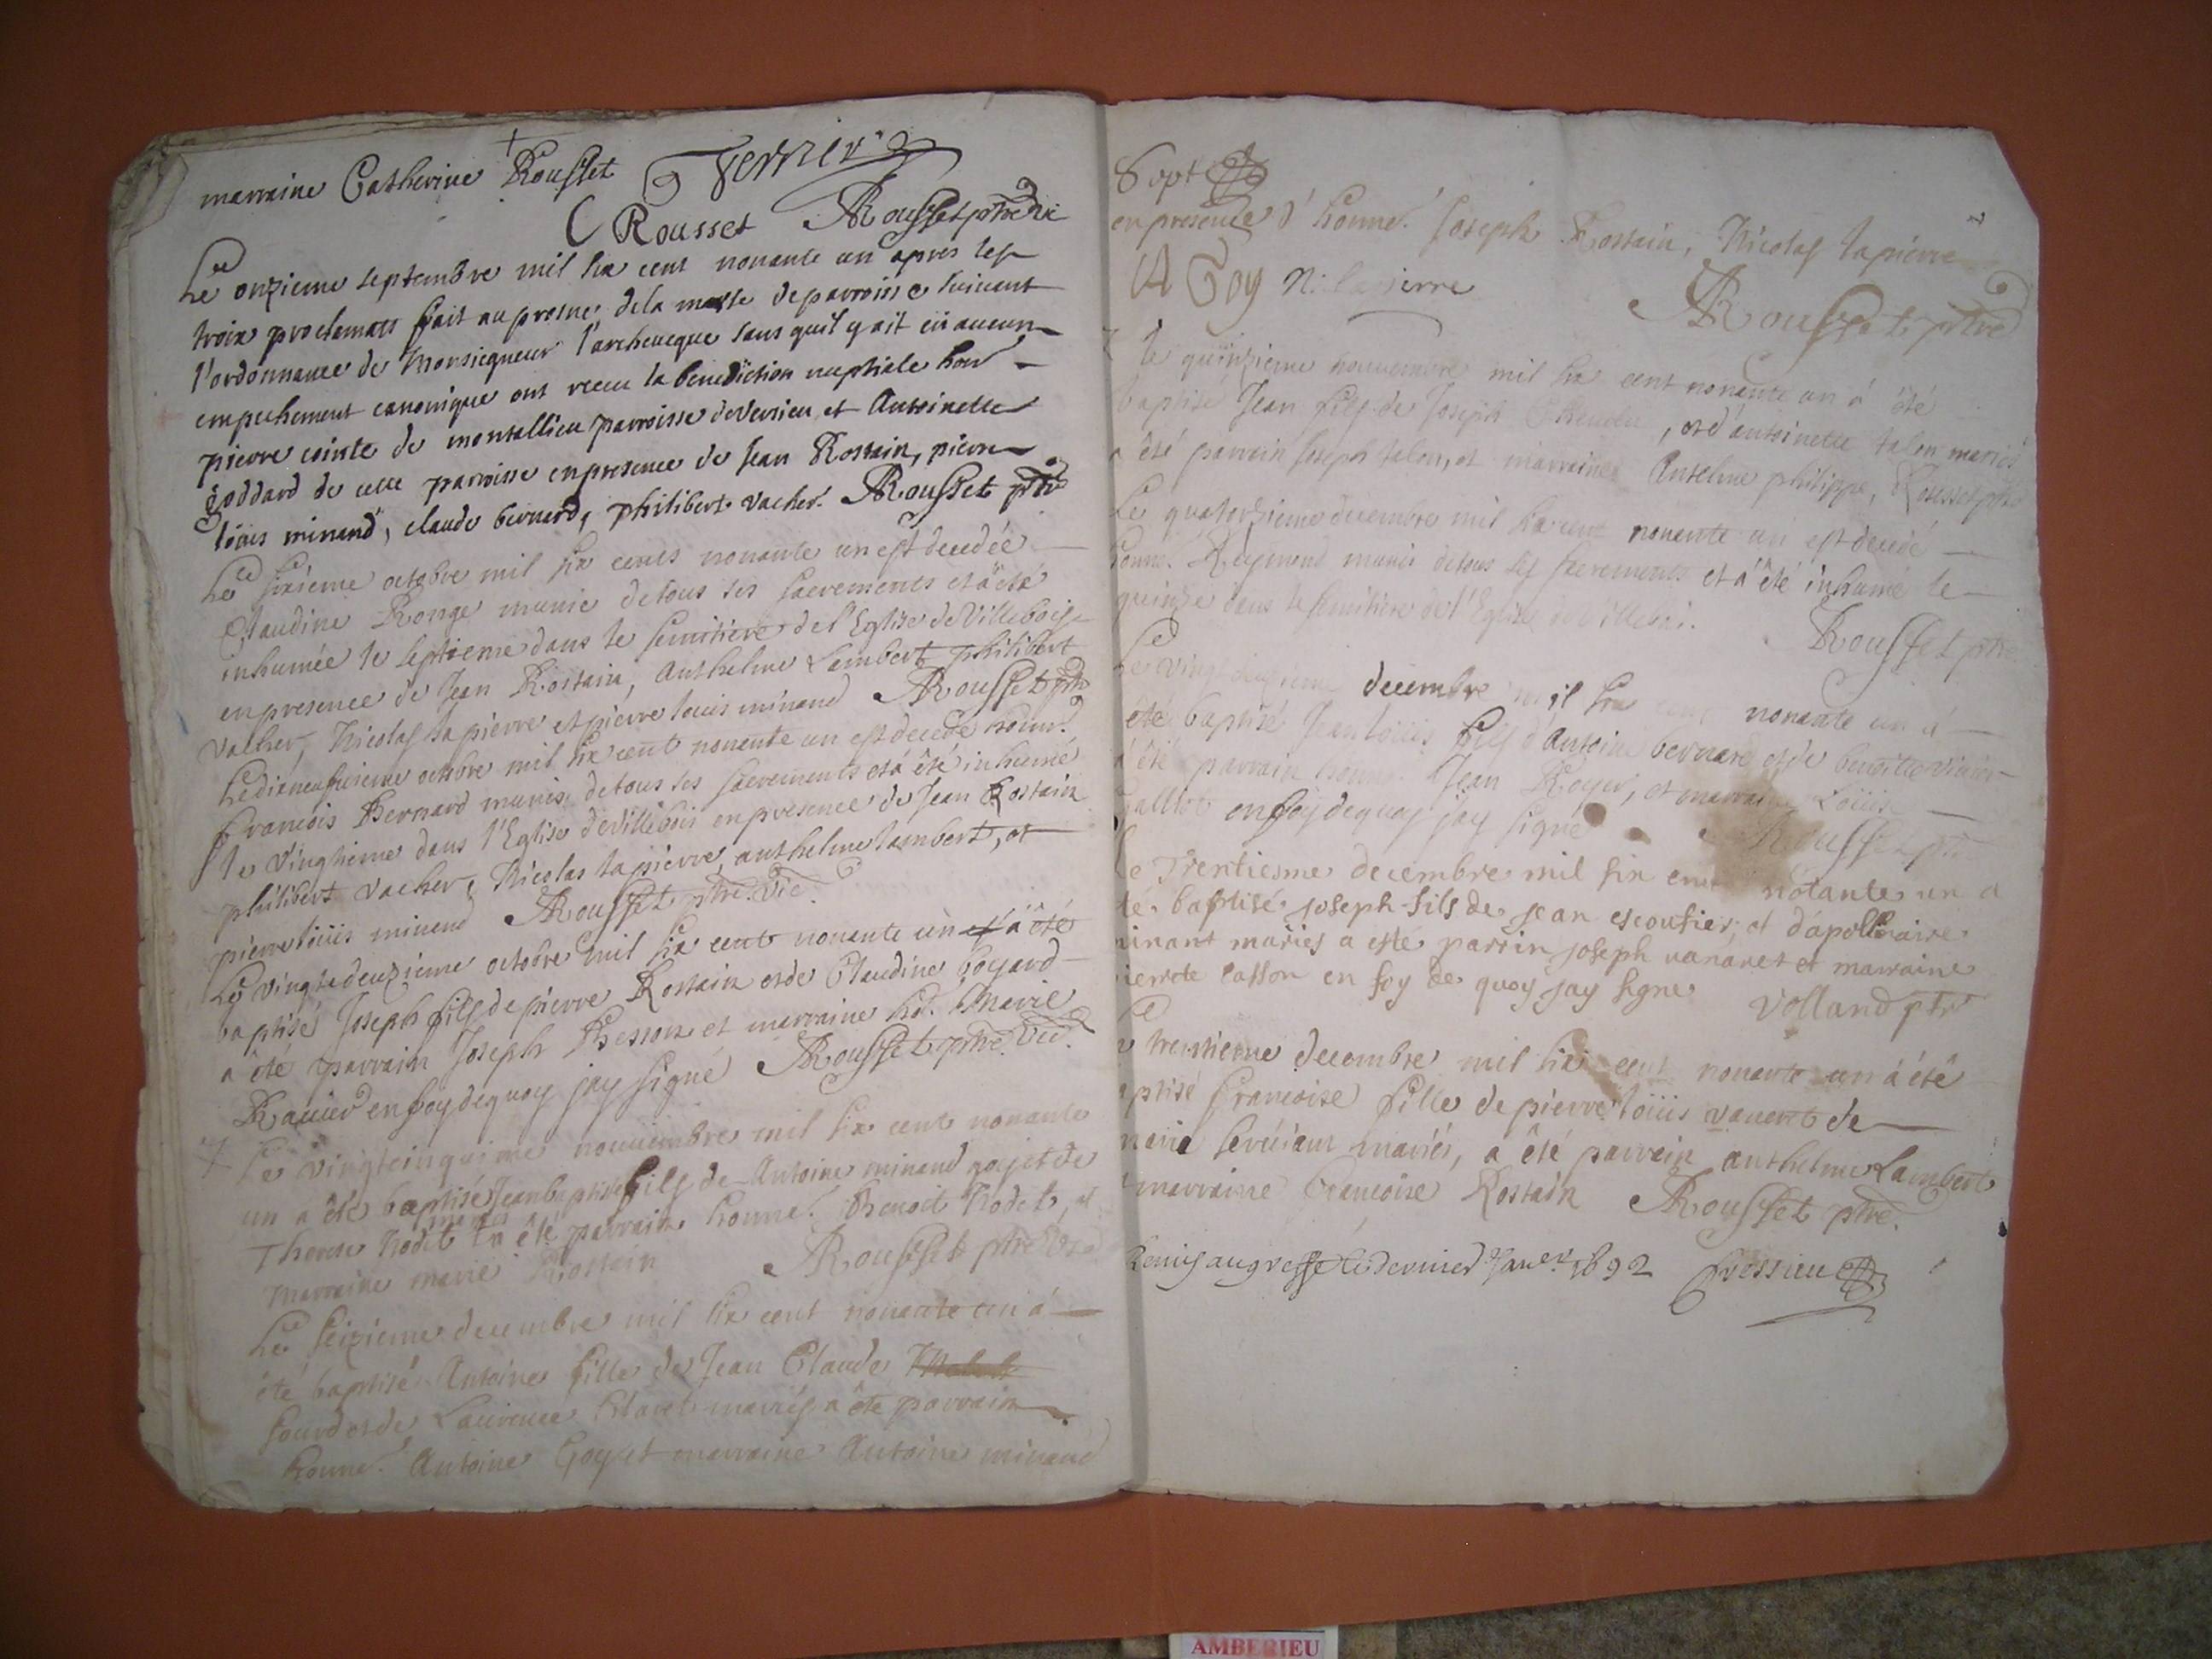 marraine Catherine Rousset Verrier
C Rousset Rousset ptre vic
Le onzieme septembre mil six cent nonante un apres les
troix proclamats fait au prosne de la messe de parroisse suivant
l'ordonnance de Monsiegneur l'archeueque sans quil y ait eü aucun
empechement canonique ont receu la benediction nuptiale hon
pierre cointe de montallieu parroisse de Verrieu et Antoinette
goddard de cette parroisse en presence de Jean Rostain, pierre
loüis minand, claude bernard, philibert vacher. Rousset ptre
Le sixieme octobre mil six cents nonante un est decedée
Claudine Ronge munie de tous ses sacrements et a êté
inhumée le septieme dans le semitiere de l'Eglise de Villebois
en presence de Jean Rostain, Anthelme Lambert philibert
vacher, Nicolas la pierre et pierre louis minand Rousset ptre
Le dixneufuieme octobre mil six cent nonante un est decedé honn.
francois Bernard munis de tous ses sacrements et á êté inhumé
le vingtieme dans l'Eglise de villebois en presence de Jean Rostain
philibert vacher, Nicolas la pierre, anthelme lambert, et
pierre loüis minand Rousset ptre. vic.
Le vingtedeuzieme octobre mil six cent nonante un a êté
baptisé Joseph fils de pierre Rostain et de Claudine goyard
a êté parrain Joseph Besson et marraine Marie
Rauier en foy de quoy jay signé Rousset ptre. vic.
Le vingtcinquieme nouuembre mil six cent nonante
un a êté baptisé Jean baptiste fils de Antoine minand goy et de
Therese Nodet mariés a êté parrain honne. Benoit Nodet, et
marraine marie Rostain Rousset ptre vic
Le seizieme decembre mil six cent nonante un á
êté baptisé Antoine fille de Jean Claude
et de Laurence mariés a êté parrain
honne. Antoine Goy et marraine Antoine minand
Sept
en presence d'honne. Joseph Rostain, Nicolas lapierre
A Goy N. lapierre Rousset ptre
le quinzieme nouuembre mil six cent nonante un á êté
baptisé Jean fils de Joseph, et d'antoinette talon mariés
a êté parrain Joseph talon, et marraine Anselme philippe, Rousset ptre
Le quatorzieme decembre mil six cent nonente un est decedé
honne. Reymond munis de tous les sacrements et á êté inhumé le
quinze dans le semitiere de l'Eglise de villeboi.
Rousset ptre
Le vingt decembre mil six cent nonante un á
eté baptisé Jean loüis fils d'Antoine bernard et de benoitte
á êté parrain honne. Jean Royer, et marraine Loüise
en foy de quoy jay signé Rousset ptre
le Trentiesme decembre mil six cent notante un a
té baptisé joseph fils de jean escoufier, et d'apollinaire
minant mariés a esté parrin joseph vanaret et marraine
pierrete lasson en foy de quoy jay signé Volland ptre
trentieme decembre mil six cent nonante un á êté
aptisé francoise fille de pierre loüis vaneret de
marie mariés, a êté parrain anthelme Lambert
marraine francoise Rostain Rousset ptre.
Remis au greffe le dernier Janer. 1692 Cressieu
AMBERIEU